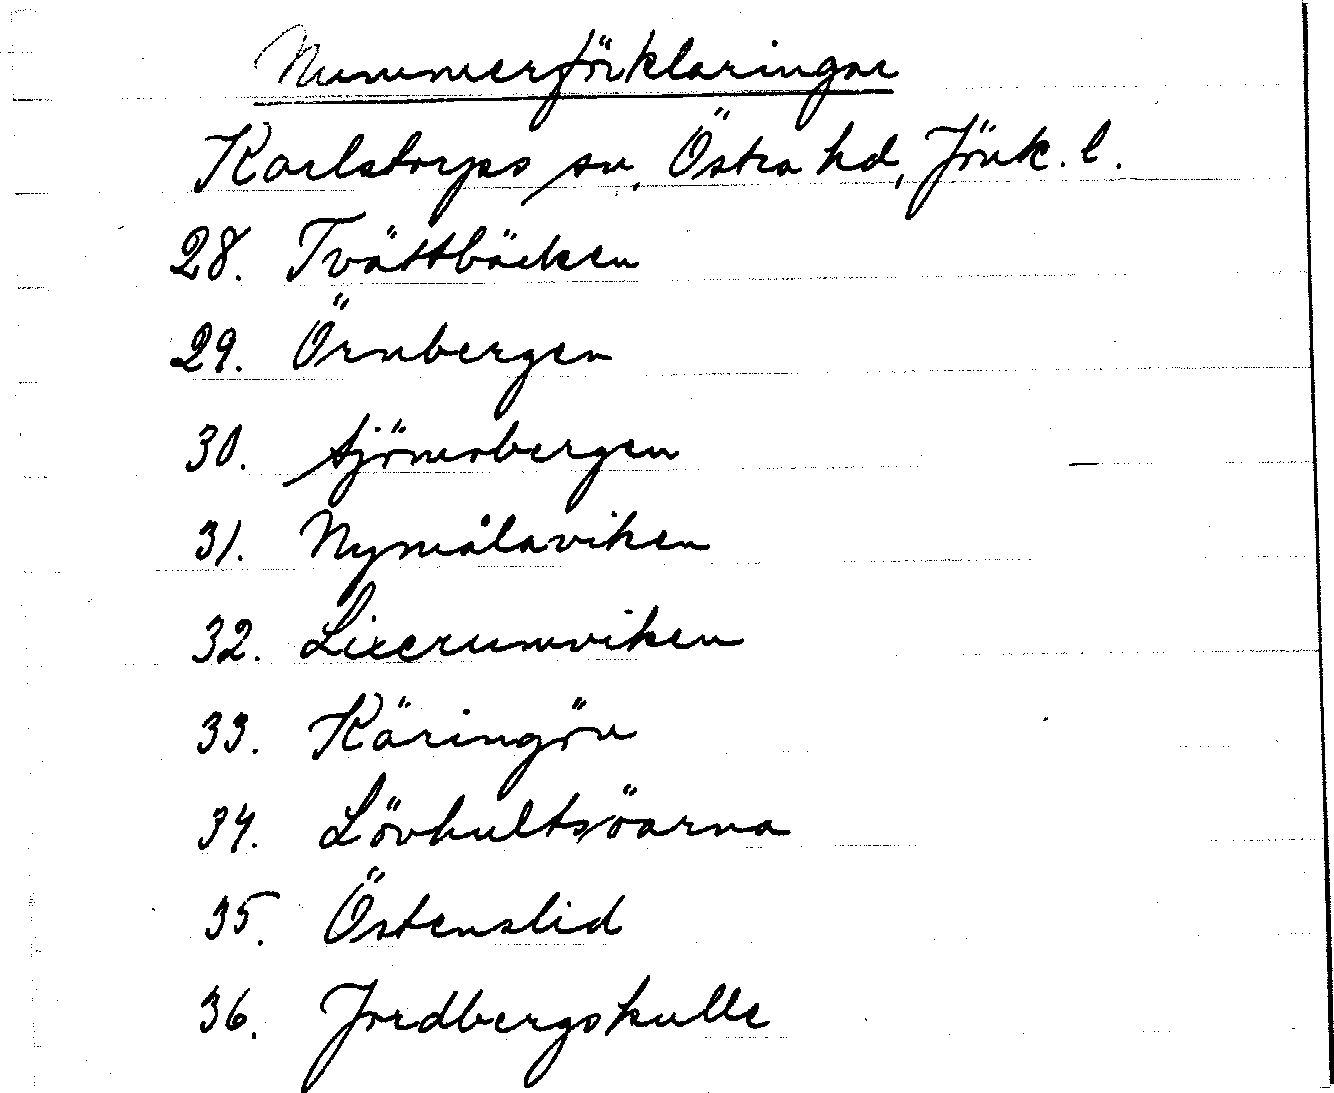 Nummerförklaringar
Karlstorps sn, Östra hd, Jönk. l.
28. Tvättbäcken
29. Örnbergen
30. Sjömobergen
31. Nymålaviken
32.
33. Käringön
34. Lövhultsöarna
35. Östenslid
36. Jordbergskulle